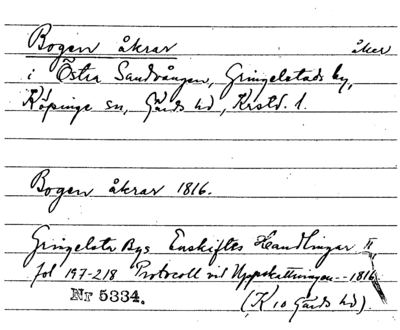 Bogen åkrar åker
i Östra Sandvången, Gringelstads by,
Köpinge sn, Gärds hd, Krstd. l.
Bogen åkrar 1816.
Gringelsta Bys Enskiftes Handlingar II
fol 197-218 Protocoll vid Uppskattningen -- 1816
Nr 5334. (K 10 Gärds hd).